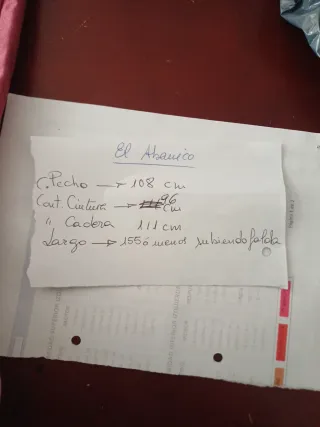 El Abanico
C. Pecho → 108 cm
Cont. Cintura → 96 cm
" Cadera 111 cm
Largo → 155 ó menos subiendo falda